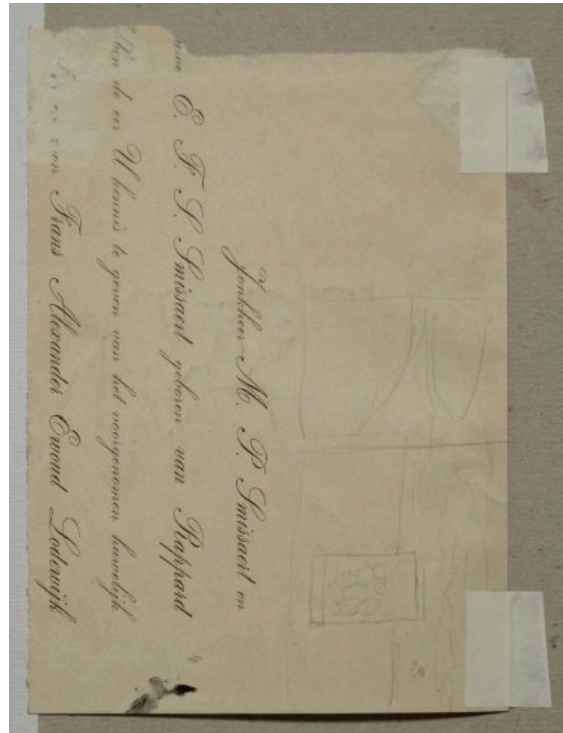 Jonkheer M. P. Smissaert en
E. F. S. Smissaert geboren van Rappard
de eer U kennis te geven van het voorgenomen huwelijk
Frans Alexander Ewoud Lodewijk